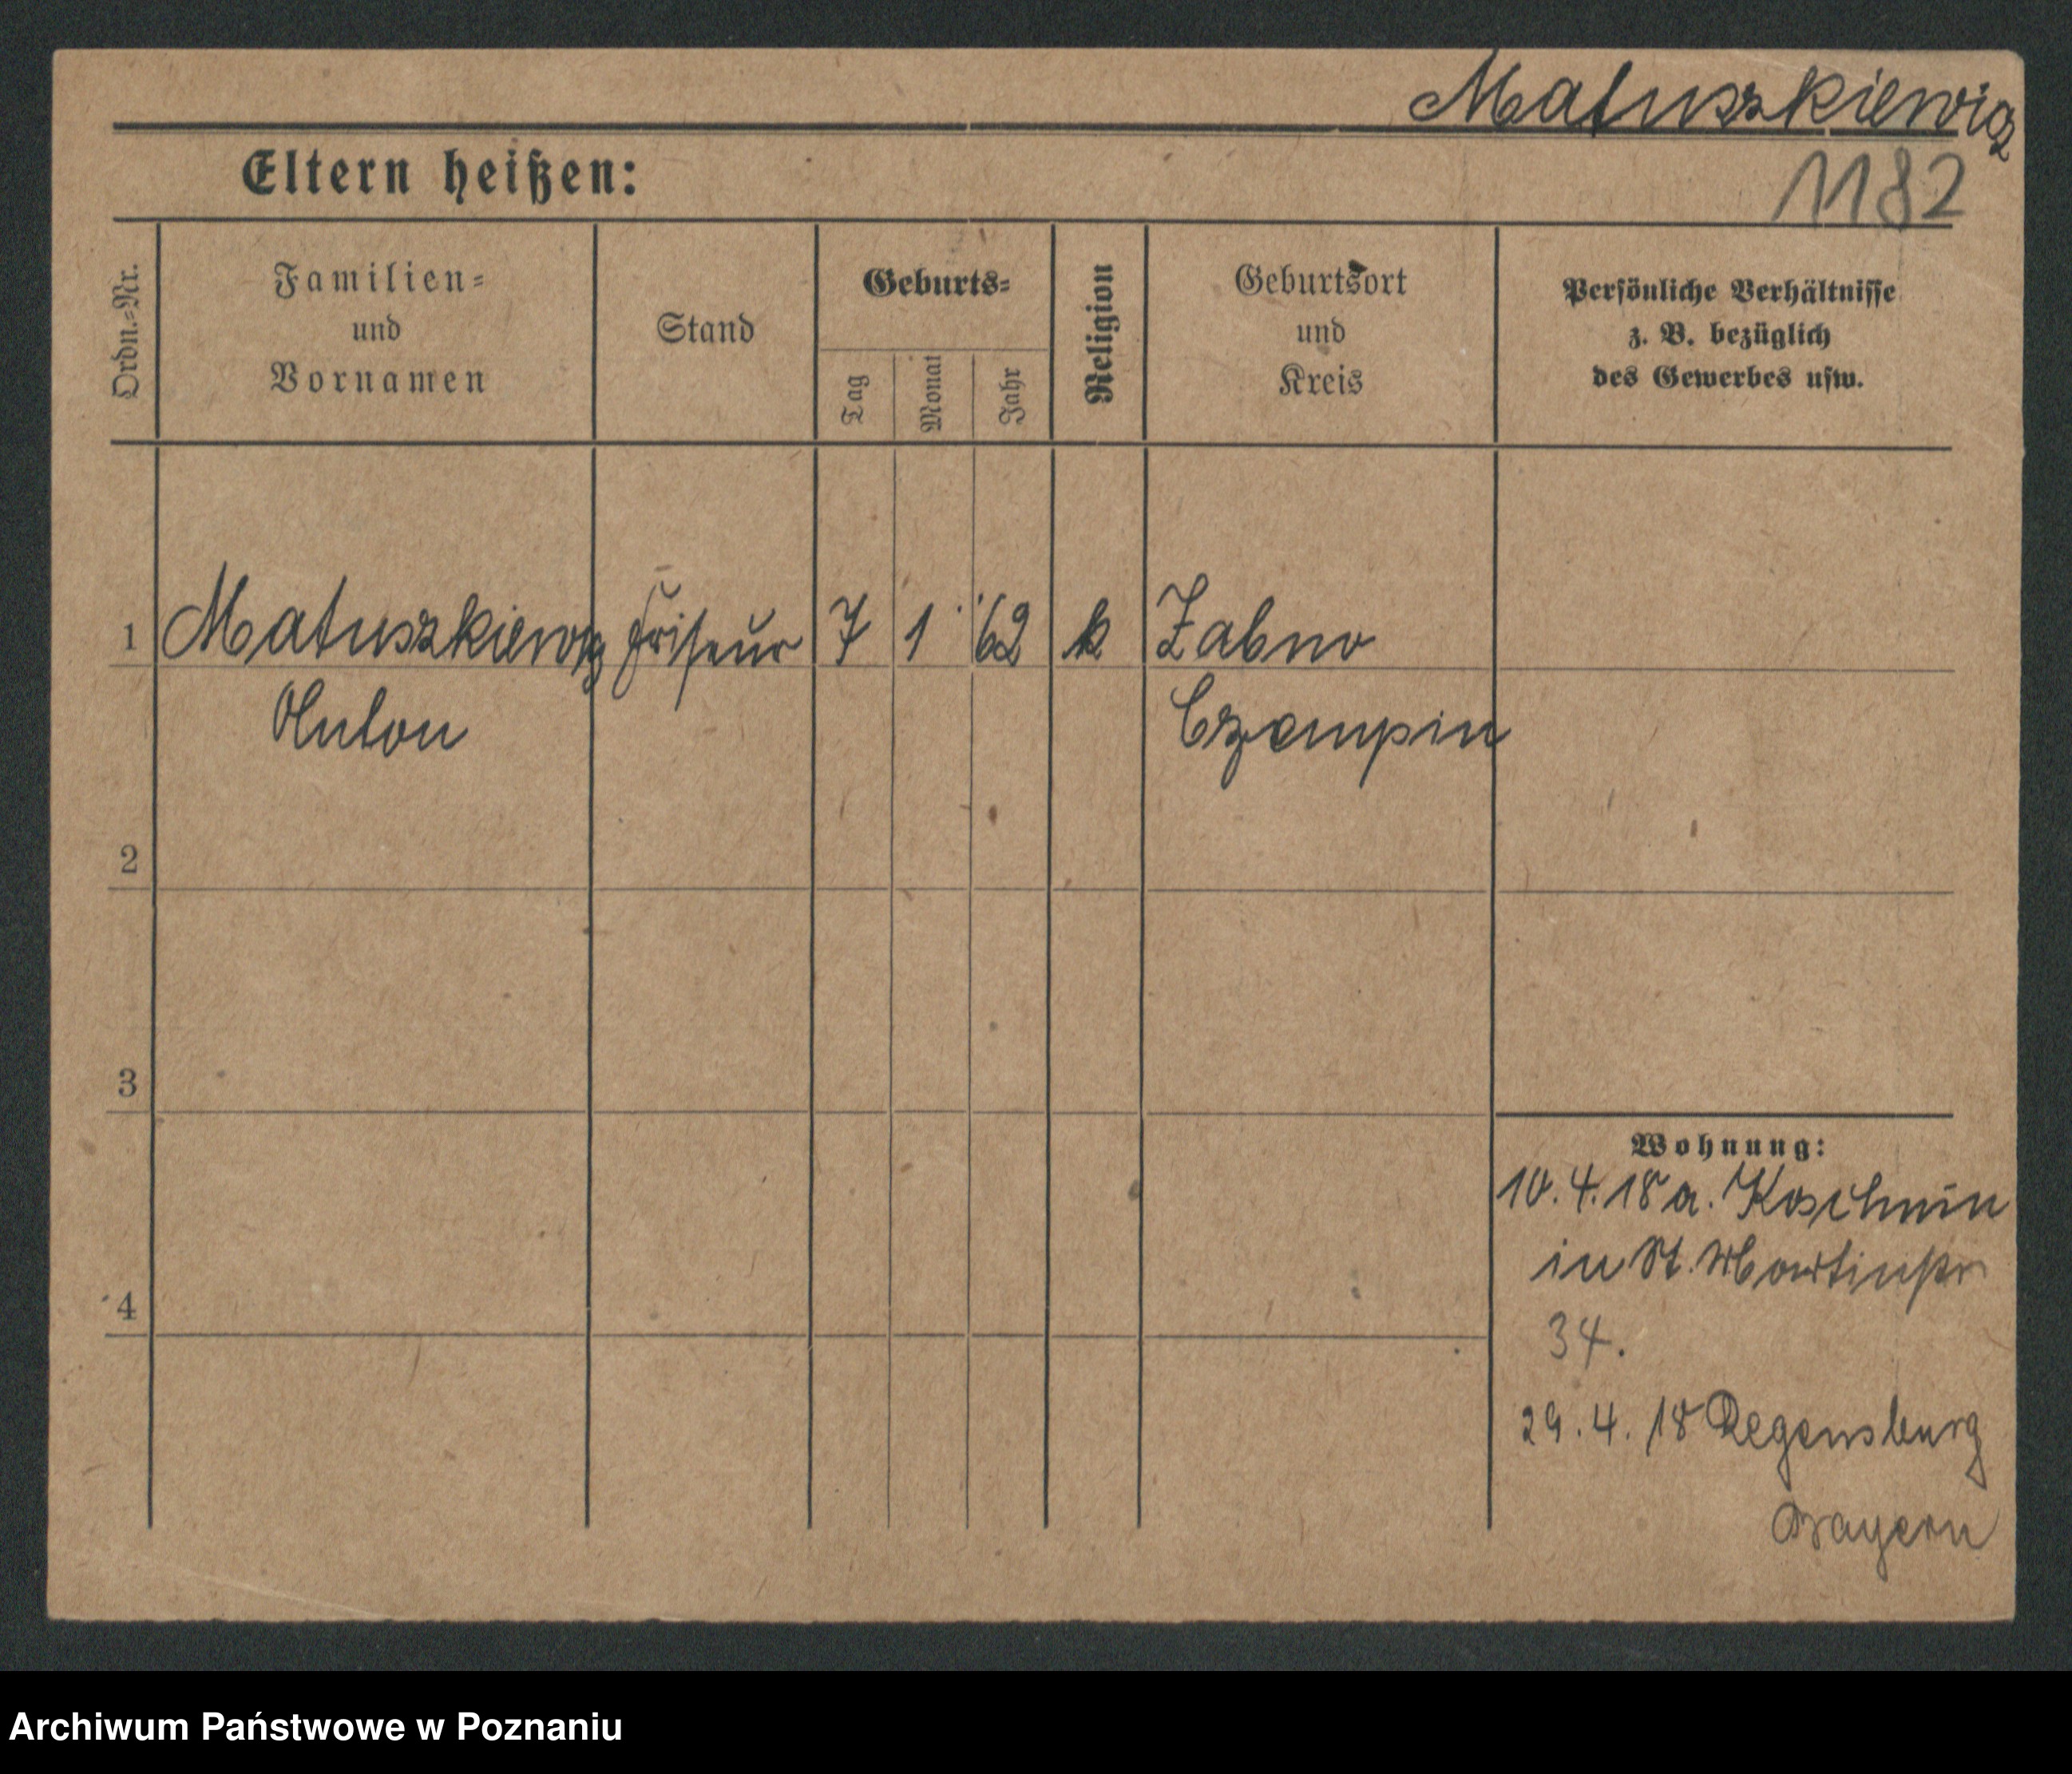 Matuszkiewicz
1182
Eltern heißen:
Ordn.=Nr.
Familien=
und
Vornamen
Stand
Geburts=
Tag
Monat
Jahr
Religion
Geburtsort
und
Kreis
Persönliche Verhältnisse
z. B. bezüglich
des Gewerbes usw.
1 Matuszkiewicz Friseur 7 1 62 k Zabno
Anton Czempin
2
3
4
Wohnung:
10.4.18 a. Koschmin
in St. Martinstr
34.
29.4.18 Regensburg
Bayern
Archiwum Państwowe w Poznaniu